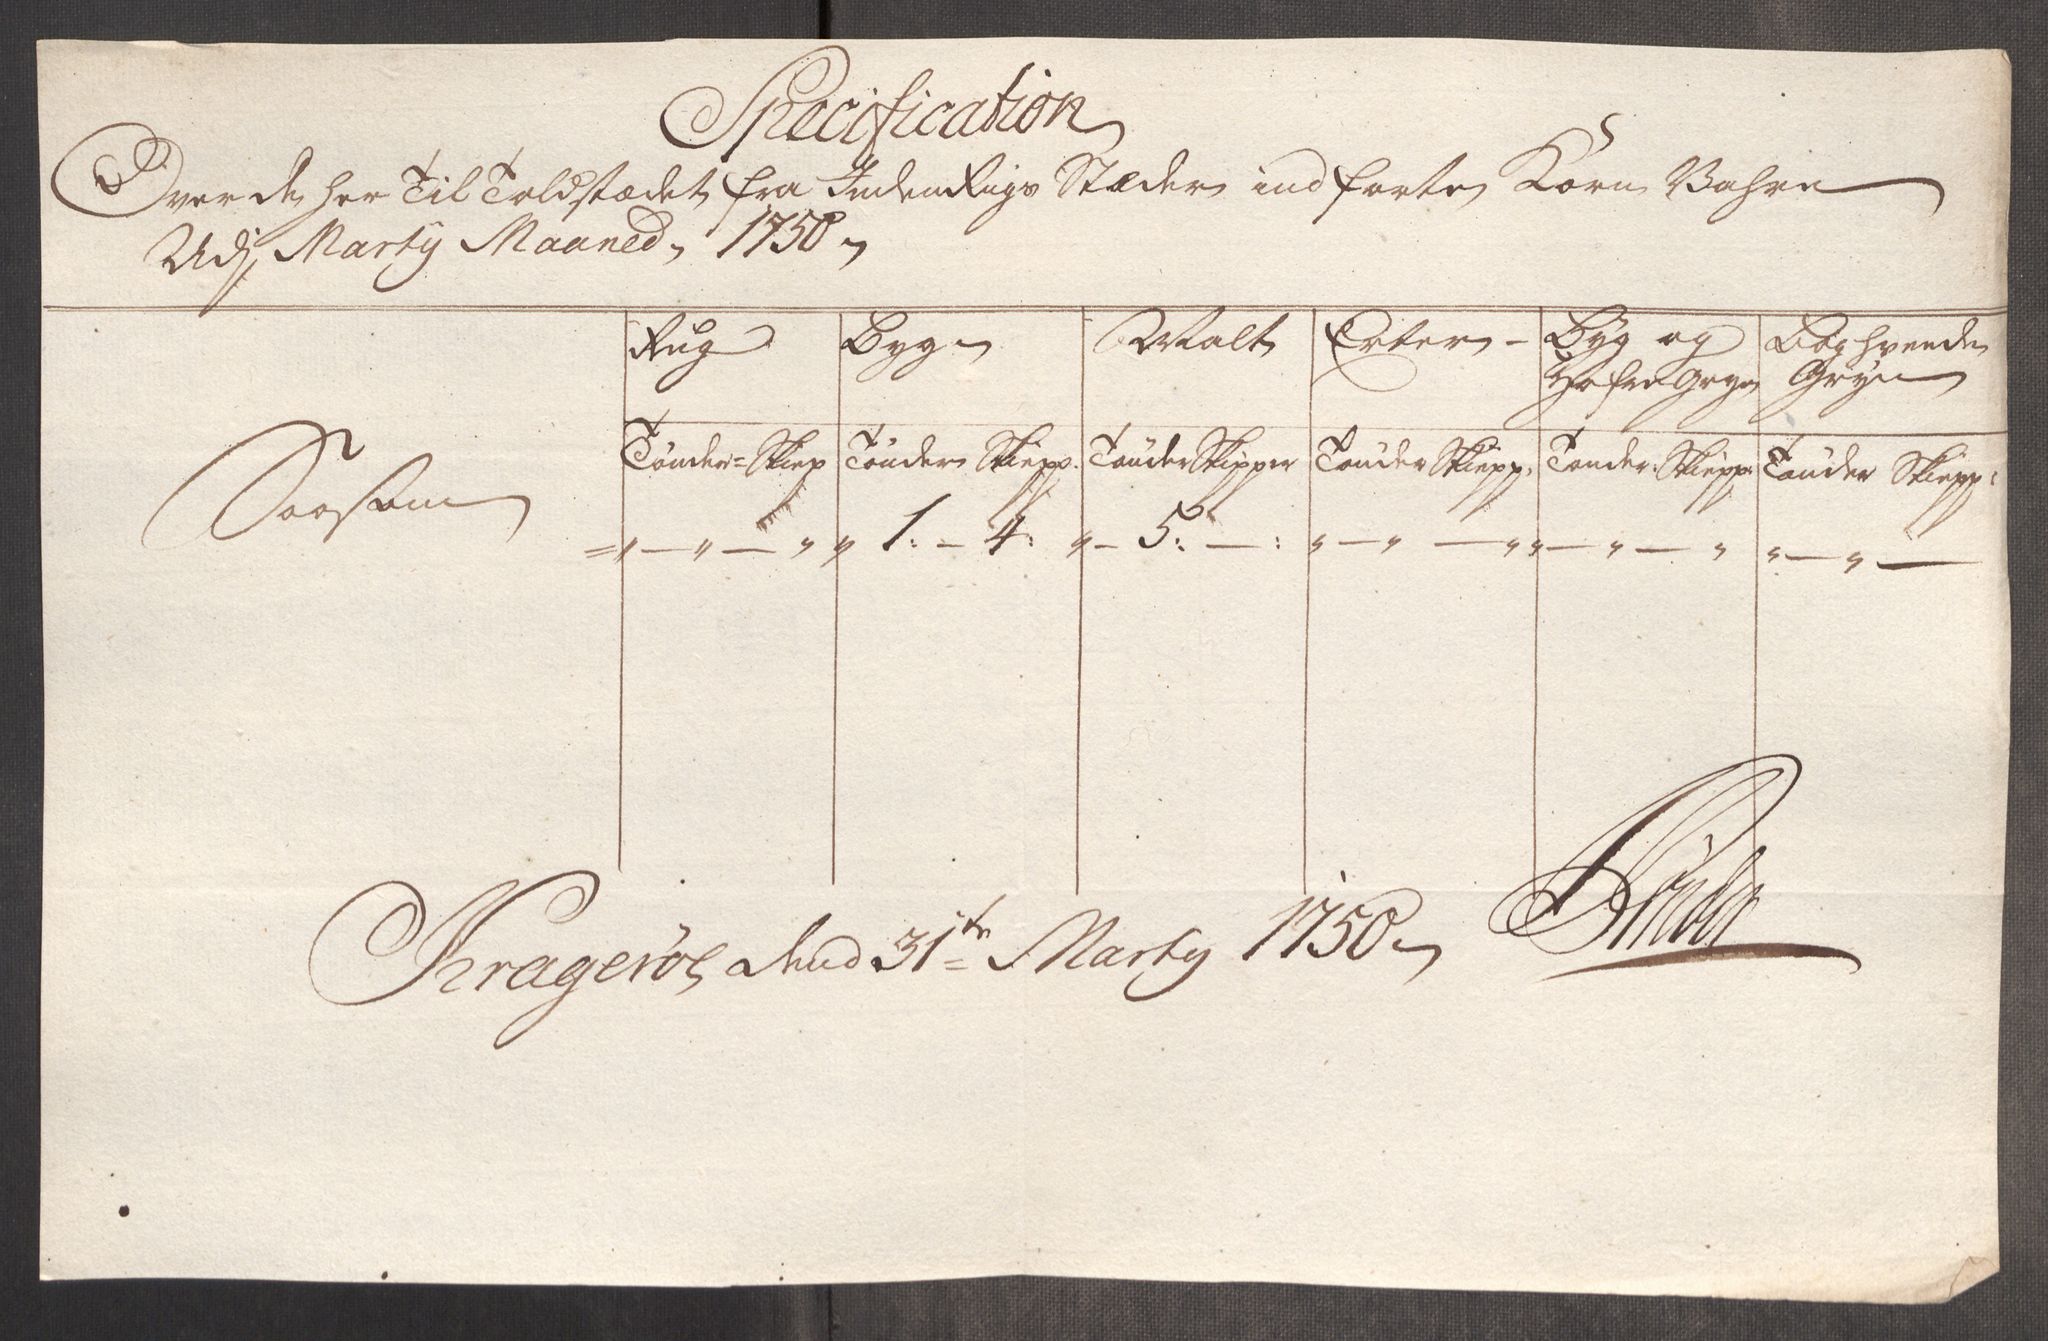 Specification
Over de her Til Toldstædet fra Inden Rigs Stæder ind førte Korn Vahre
Udj Marty Maaned 1750
Rug Byg Malt Erter Byg og Boghvede
Hafre Gryn Gryn
Tønder Skiep Tønder Skiepp. Tønder Skipper Tønder Skiepp: Tønder: Skiepp: Tønder Skiepp:
Saasom
=" — " — " " 1: — 4: " — 5: — : " — " — " " — " — " " — " —
Kragerøe dend 31te Marty 1750